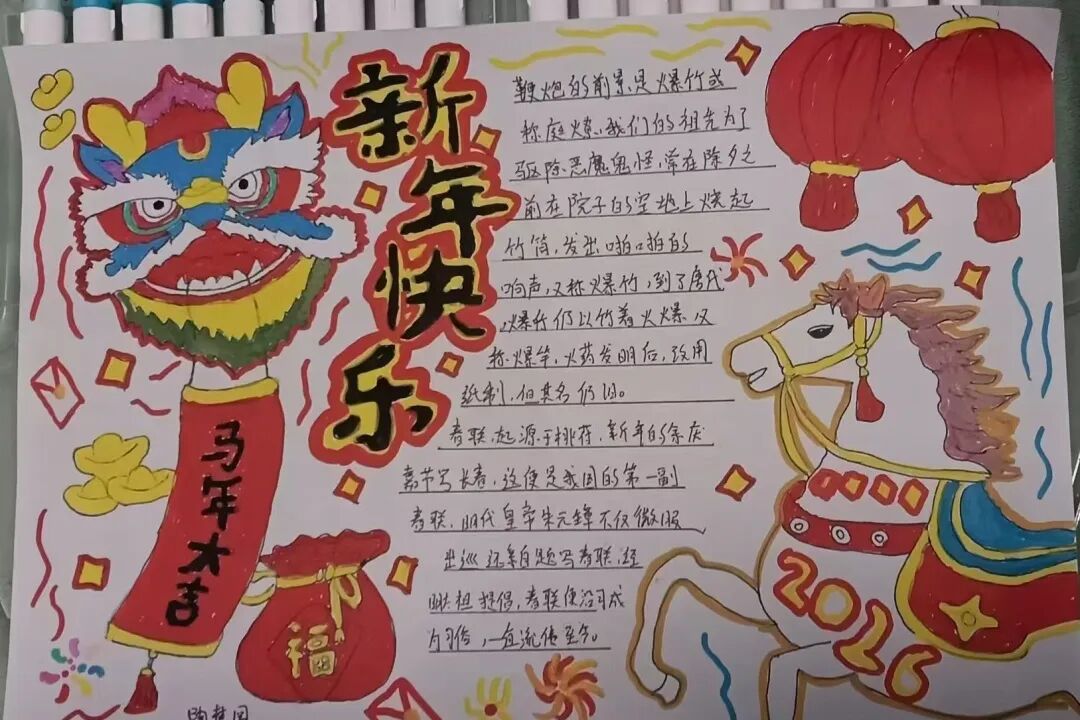 新年快乐
马年大吉
福
2026
鞭炮的前景是爆竹或
称庭燎,我们的祖先为了
驱除恶魔鬼怪,常在除夕之
前在院子的空地上烧起
竹筒,发出啪啪的
响声,又称爆竹,到了唐代
爆竹仍以竹着火爆,又
称爆竿,火药发明后,改用
纸制,但其名仍旧。
春联起源于桃符,新年的余庆
嘉节号长春,这便是我国的第一副
春联,明代皇帝朱元璋不仅微服
出巡还亲自题写春联,经
提倡,春联便沿习成
为习俗,一直流传至今。